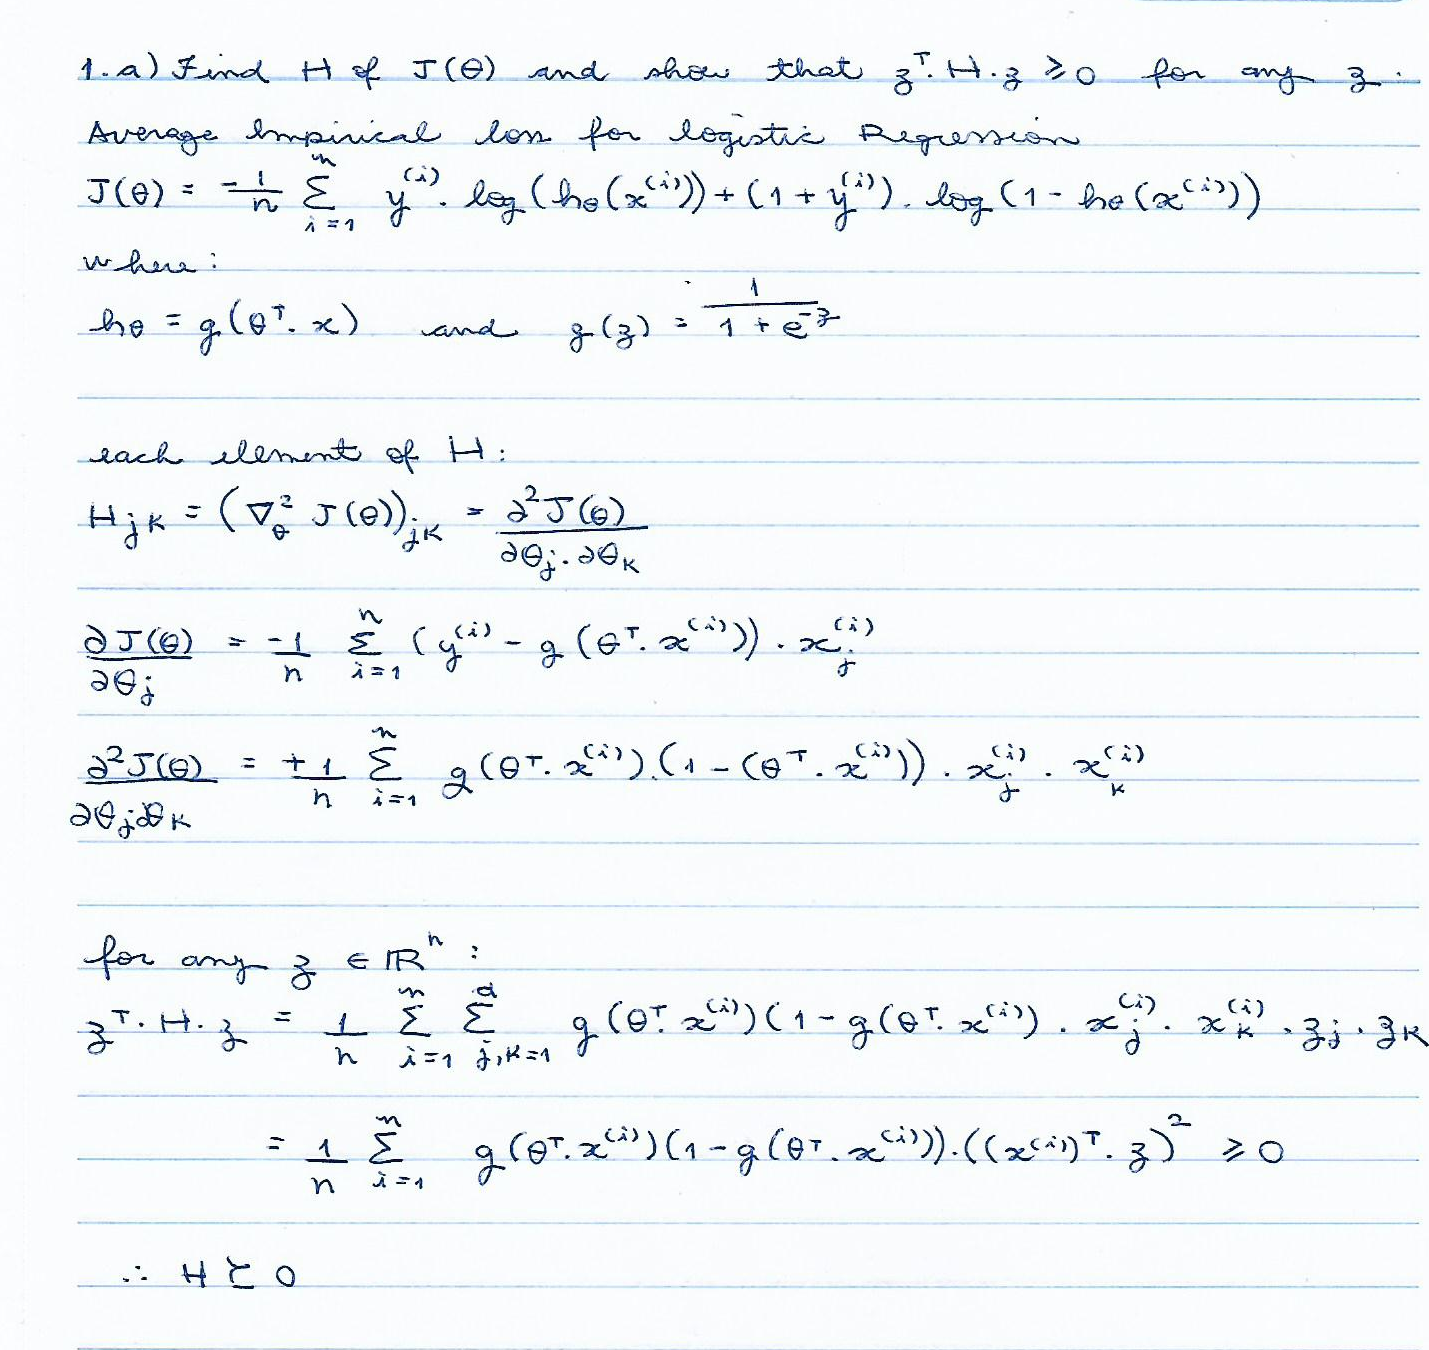 1.a) Find H of J(θ) and show that zᵀ·H·z ≥ 0 for any z.
Average Empirical loss for logistic Regression
J(θ) = -1/n Σ_{i=1}^{n} y^{(i)}· log(hθ(x^{(i)})) + (1 + y^{(i)}). log(1 - hθ(x^{(i)}))
where:
hθ = g(θᵀ. x) and g(z) = 1/(1 + e^{-z})
each element of H:
H_{jK} = (∇²_θ J(θ))_{jK} = ∂²J(θ)/∂θ_j.∂θ_K
∂J(θ)/∂θ_j = -1/n Σ_{i=1}^{n} (y^{(i)} - g(θᵀ. x^{(i)})) . x_j^{(i)}
∂²J(θ)/∂θ_j∂θ_K = +1/n Σ_{i=1}^{n} g(θᵀ. x^{(i)}).(1 - (θᵀ. x^{(i)})) . x_j^{(i)} . x_K^{(i)}
for any z ∈ ℝⁿ :
zᵀ. H. z = 1/n Σ_{i=1}^{n} Σ_{j,K=1}^{d} g(θᵀ. x^{(i)})(1 - g(θᵀ. x^{(i)}) . x_j^{(i)}. x_K^{(i)} . z_j . z_K
= 1/n Σ_{i=1}^{n} g(θᵀ. x^{(i)})(1 - g(θᵀ. x^{(i)})).((x^{(i)})ᵀ. z)² ≥ 0
∴ H ⪰ 0